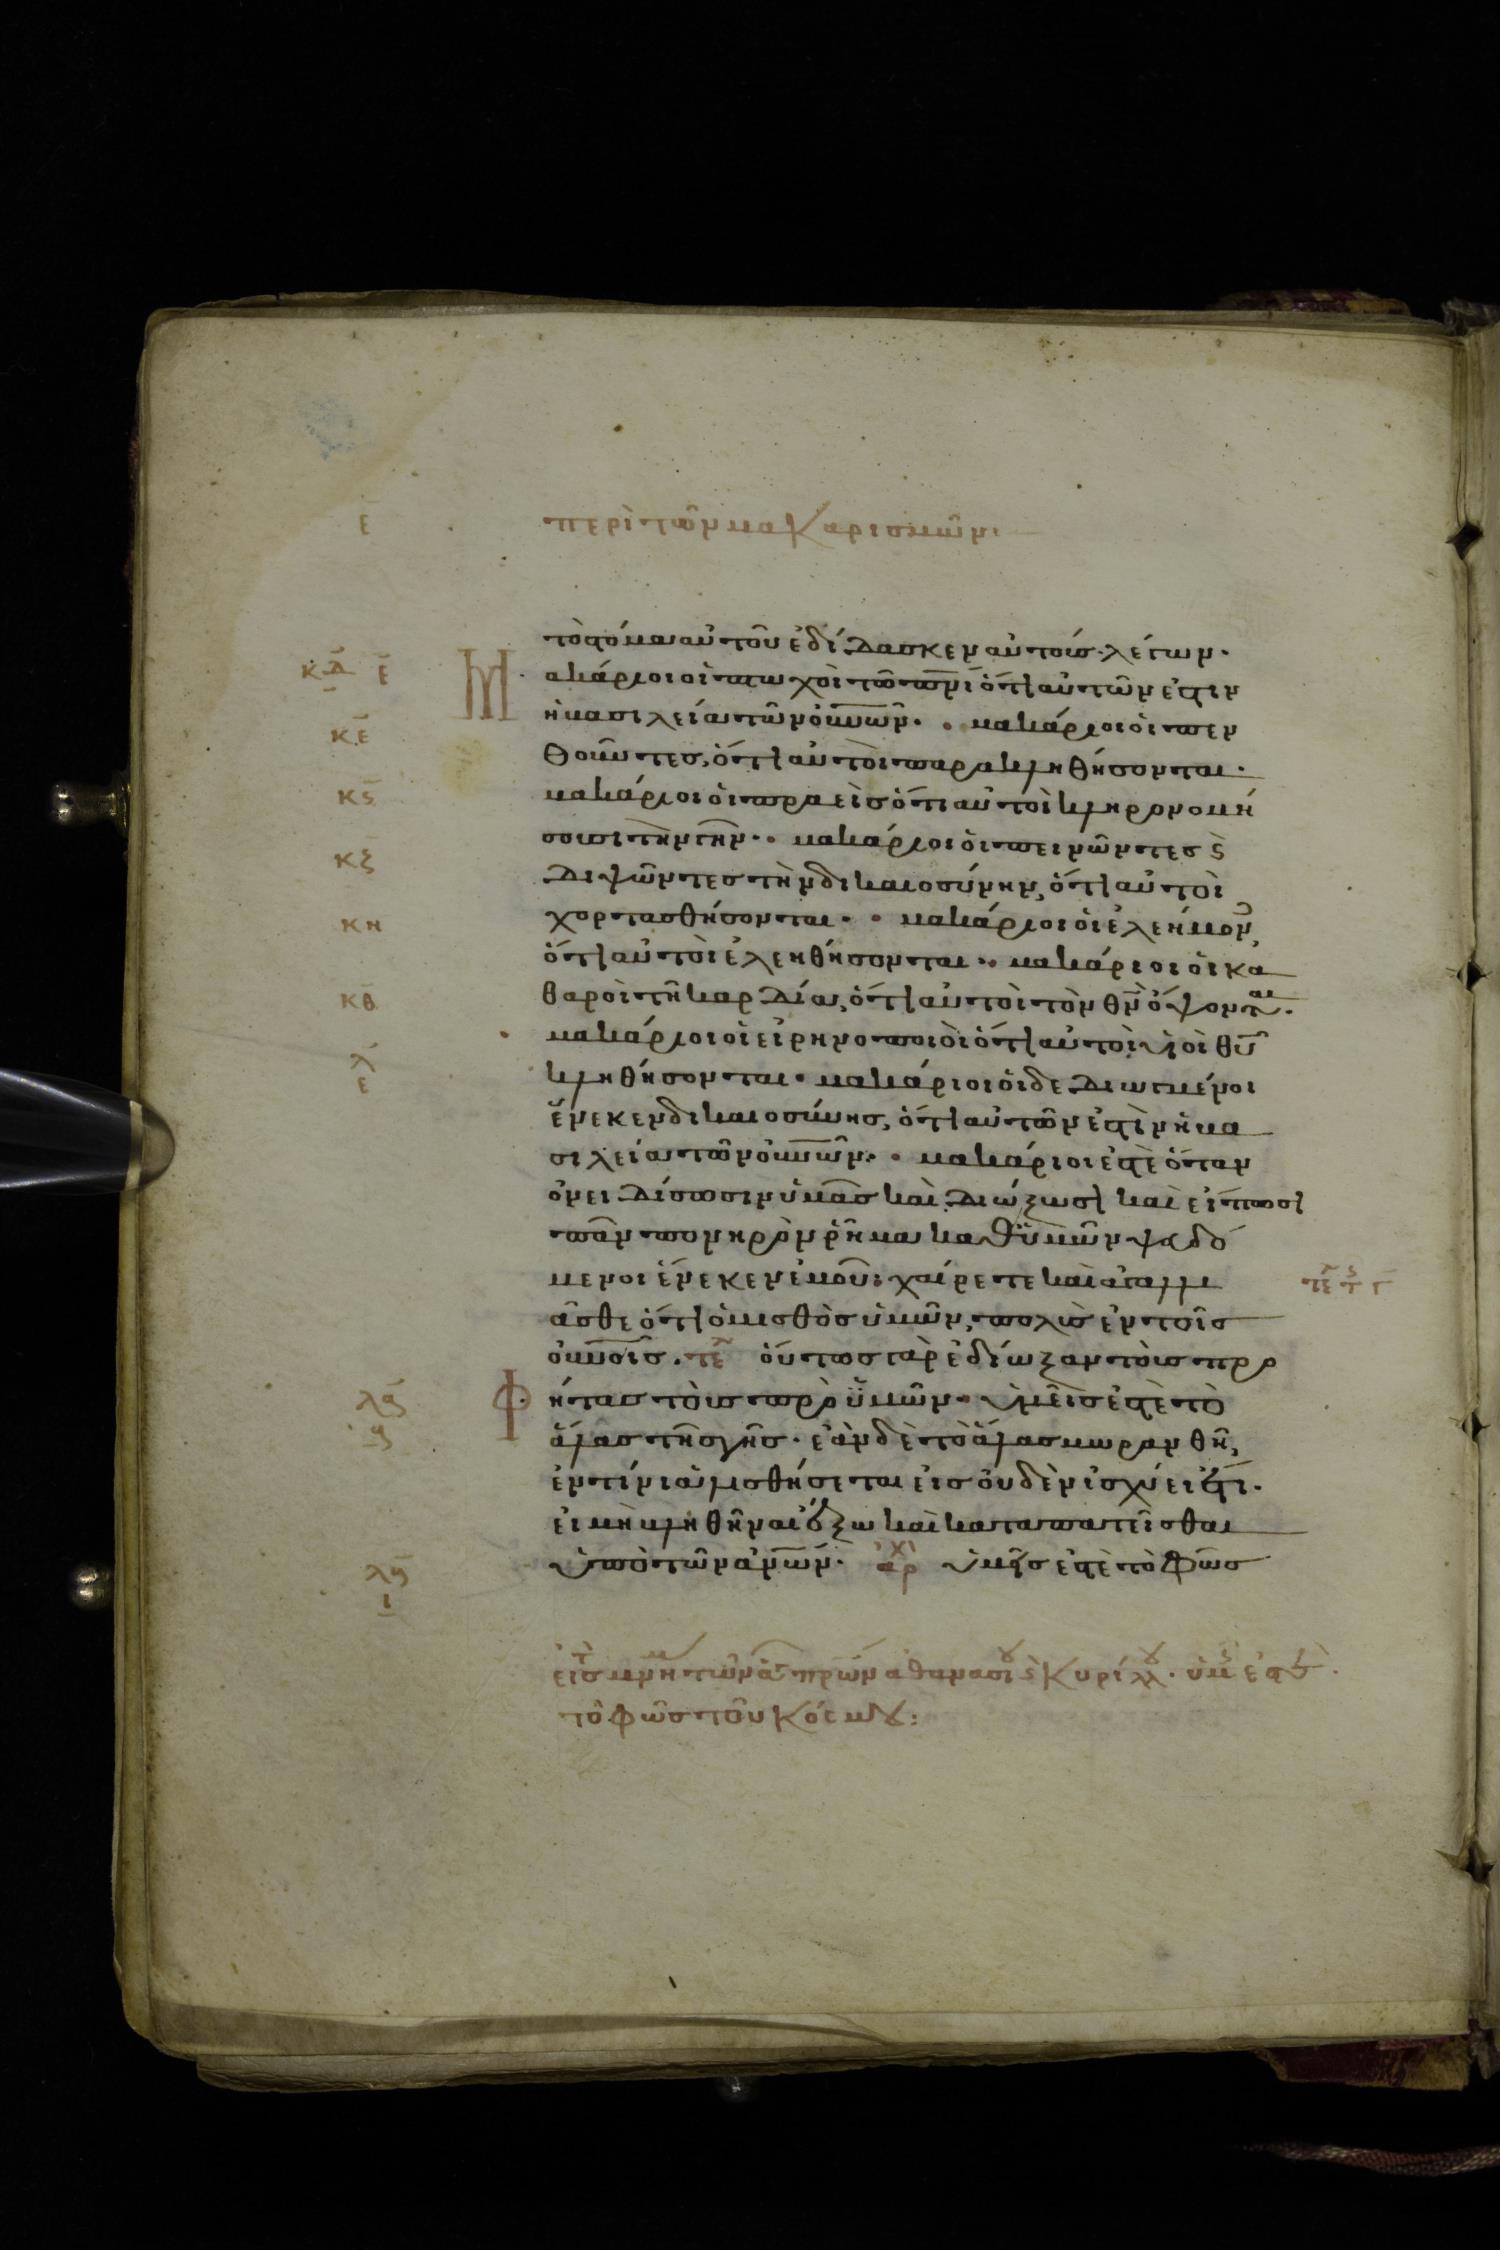 ε̄ περὶ τῶν μακαρισμῶν·
τὸ στόμα αὐτοῦ ἐδίδασκεν αὐτοὺς λέγων·
κδ̄ ε̄ Μακάριοι οἱ πτωχοὶ τῶ πνῑ ὅτι αὐτῶν ἐστιν
κε̄ ἡ βασιλεία τῶν οὐνῶν· μακάριοι οἱ πεν
θοῦντες, ὅτι αὐτοὶ παρακληθήσονται·
κϛ̄ μακάριοι οἱ πραεῖς ὅτι αὐτοὶ κληρονομή
σουσι τὴν γῆν· μακάριοι οἱ πεινῶντες ϗ
κζ̄ διψῶντες τὴν δικαιοσύνην, ὅτι αὐτοὶ
κη χορτασθήσονται· μακάριοι οἱ ἐλεήμον,
ὅτι αὐτοὶ ἐλεηθήσονται· μακάριοι οἱ κα
κθ̄ θαροὶ τῆ καρδία, ὅτι αὐτοὶ τὸν θν̄ ὄψονται·
μακάριοι οἱ εἰρηνοποιοὶ ὅτι αὐτοὶ ὑιοὶ θῡ
λ̄ ε κληθήσονται· μακάριοι οἱ δεδιωγμένοι
ἕνεκεν δικαιοσύνης, ὅτι αὐτῶν ἐστὶν ἡ βα
σιλεία τῶν οὐνῶν· μακάριοι ἐστὲ ὅταν
ὀνειδίσωσιν ὑμᾶς καὶ διώξωσι καὶ εἴπωσι
πᾶν πονηρὸν ῥῆμα καθ ὑμῶν ψευδό
μενοι ἕνεκεν ἐμοῦ· χαίρετε καὶ ἀγαλλι
ᾶσθε ὅτι ὁ μισθὸς ὑμῶν, πολὺς ἐν τοῖς
οὐνοῖς. τε ὅυτως γὰρ ἐδίωξαν τοὺς προ
φήτας τοὺς πρὸ ὑμῶν· ὑμεῖς ἐστὲ τὸ
ἅλας τῆς γῆς· ἐὰν δὲ τὸ ἅλας μωρανθῆ,
ἐν τίνι ἁλισθήσεται εἰς οὐδὲν ἰσχύει ἔτι·
εἰ μὴ βληθῆναι ἔξω καὶ καταπατεῖσθαι
ὑπὸ τῶν ἀνῶν· ἀρχ ὑμεῖς ἐστὲ τὸ φῶς
εἰς τ μνημ τῶν ἁγ πρων ἀθανασίου ϗ Κυρίλλου· ὑμ ἐστὲ
τὸ φῶς τοῦ Κόσμου: